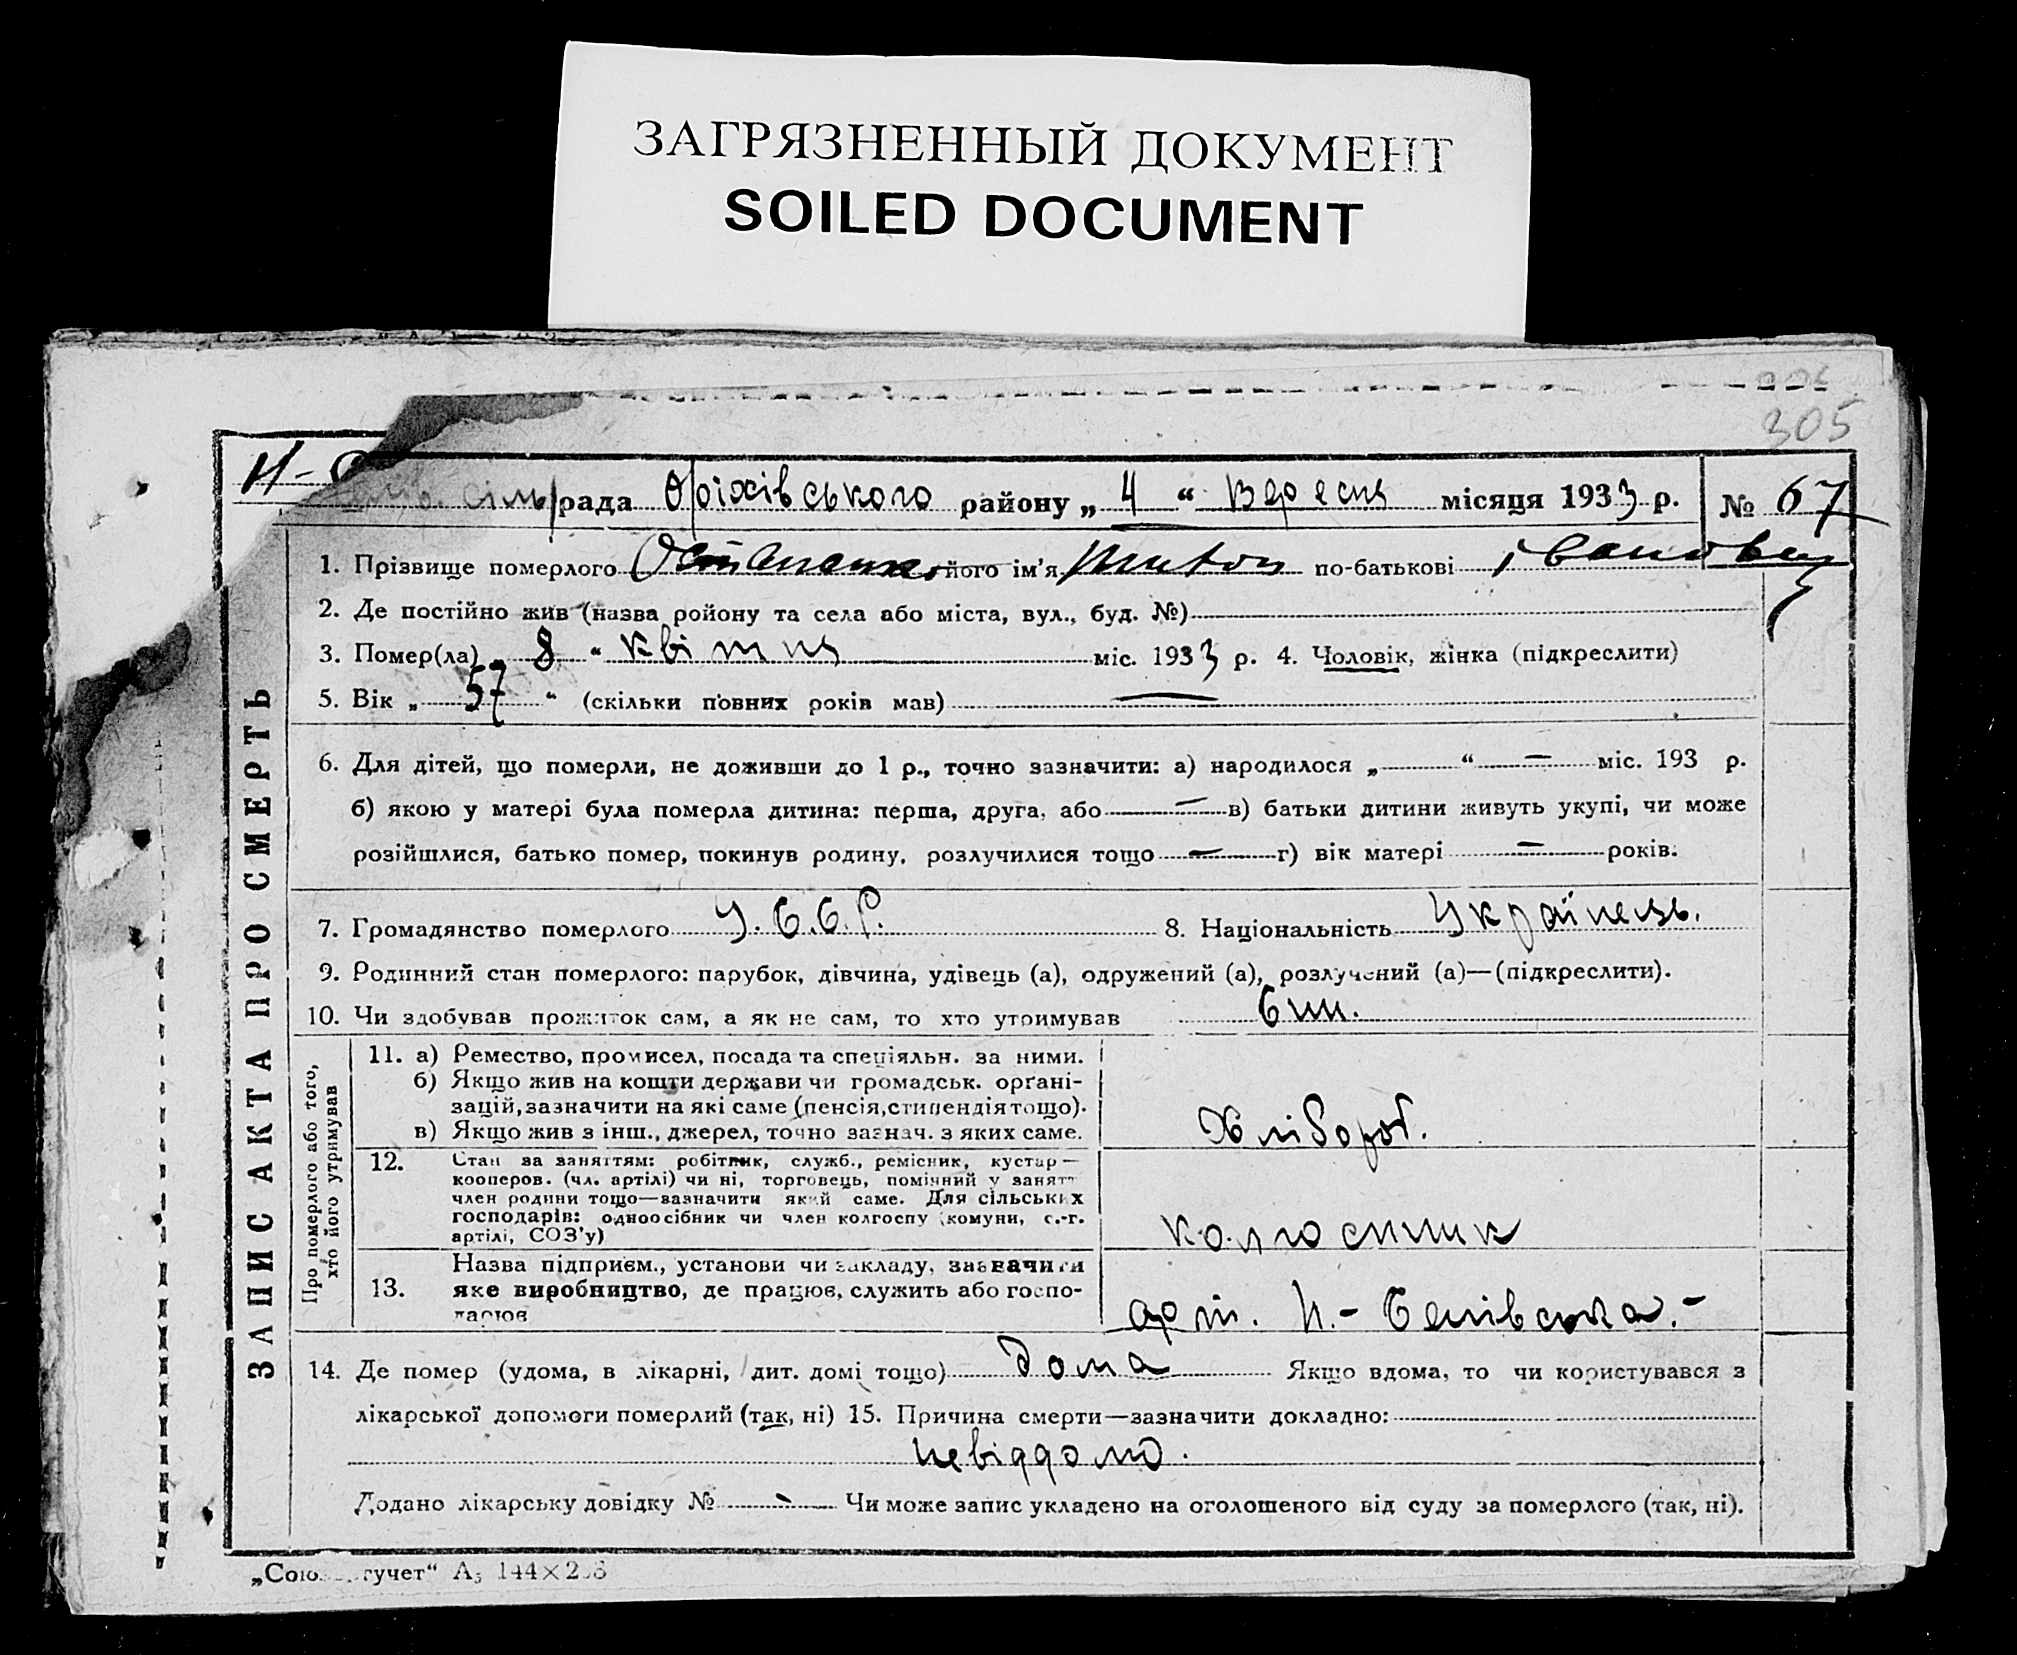 ЗАГРЯЗНЕННЫЙ ДОКУМЕНТ
SOILED DOCUMENT
305
Н-
сіль рада Оріхівського району „ 4 “ Вересня місяця 1933 р. № 67
1. Прізвище померлого його ім’я по-батькові Іванович
2. Де постійно жив (назва району та села або міста, вул., буд. №)
3. Помер(ла) 8 “ квітня міс. 1933 р. 4. Чоловік, жінка (підкреслити)
5. Вік „ 57 “ (скільки повних років мав) —
6. Для дітей, що померли, не доживши до 1 р., точно зазначити: а) народилося „ “ — міс. 193 р.
б) якою у матері була померла дитина: перша, друга, або — в) батьки дитини живуть укупі, чи може
розійшлися, батько помер, покинув родину, розлучилися тощо — г) вік матері — років.
7. Громадянство померлого У.С.С.Р. 8. Національність Українець.
9. Родинний стан померлого: парубок, дівчина, удівець (а), одружений (а), розлучений (а)—(підкреслити).
10. Чи здобував прожиток сам, а як не сам, то хто утримував
ЗАПИС АКТА ПРО СМЕРТЬ
Про померлого або того,
хто його утримував
11. а) Ремество, промисел, посада та спеціяльн. за ними.
б) Якщо жив на кошти держави чи громадськ. орґані-
зацій, зазначити на які саме (пенсія, стипендія тощо).
в) Якщо жив з інш., джерел, точно зазнач. з яких саме.
Хлібороб.
12. Стан за заняттям: робітник, служб., ремісник, кустар—
кооперов. (чл. артілі) чи ні, торговець, помічний у занятт
член родини тощо—зазначити який саме. Для сільських
господарів: одноосібник чи член колгоспу (комуни, с.-г.
артілі, СОЗ’у)
колгоспник
13. Назва підприєм., установи чи закладу, зазначити
яке виробництво, де працює, служить або госпо-
дарює
арт. Н.-
14. Де помер (удома, в лікарні, дит. домі тощо) дома Якщо вдома, то чи користувався з
лікарської допомоги померлий (так, ні) 15. Причина смерти—зазначити докладно:
невідомо.
Додано лікарську довідку № - Чи може запис укладено на оголошеного від суду за померлого (так, ні).